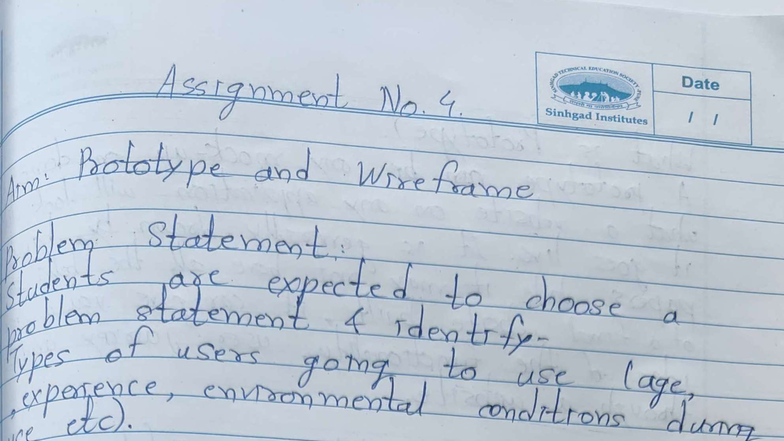 Assignment No. 4.
SINHGAD TECHNICAL EDUCATION SOCIETY
Sinhgad Institutes
Date
/ /
Aim: Prototype and Wireframe
Problem Statement:
Students are expected to choose a
problem statement & identify-
Types of users going to use (age,
experience, environmental conditions during
etc).